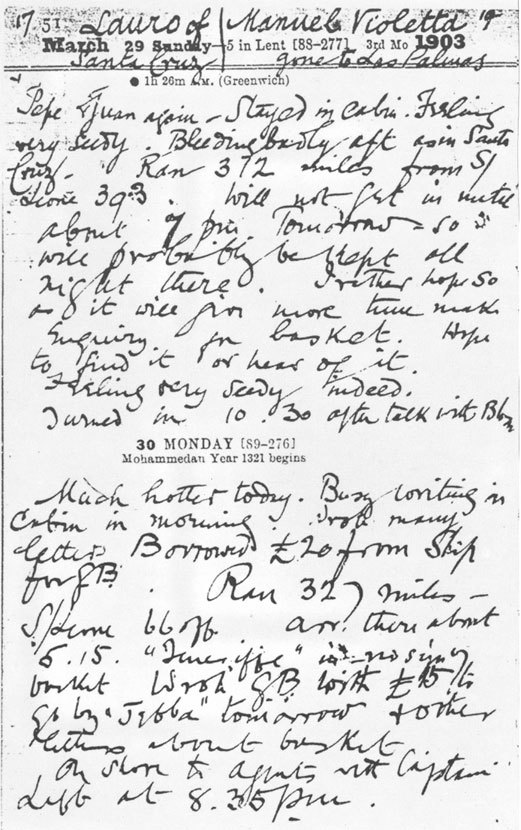 17.51 Lauro of / Manuel Violetta 19
March 29 Sunday—5 in Lent [88-277] 3rd Mo 1903
Santa Cruz gone to Las Palmas
● 1h 26m A.M. (Greenwich)
Pepe & Juan again – Stayed in cabin. Feeling
very seedy. Bleeding badly aft as in Santa
Cruz. Ran 372 miles from S/
Leone 393. Will not get in until
about 7 pm Tomorrow – so
will probably be kept all
night there. I rather hope so
as it will give more time make
Enquiry for basket. Hope
to find it or hear of it.
Feeling very seedy indeed.
Turned in 10.30 after talk with
30 MONDAY [89-276]
Mohammedan Year 1321 begins
Much hotter today. Busy writing in
Cabin in morning. Wrote many
letters Borrowed £20 from Ship
for GB. Ran 327 miles –
S/Leone 66 off arr. there about
5.15. "Teneriffe" in – no sign of
basket Wrote GB with £15 to
go by "Jebba" tomorrow & other
letters about basket
On shore to Agents with Captain
Left at 8.35 pm.